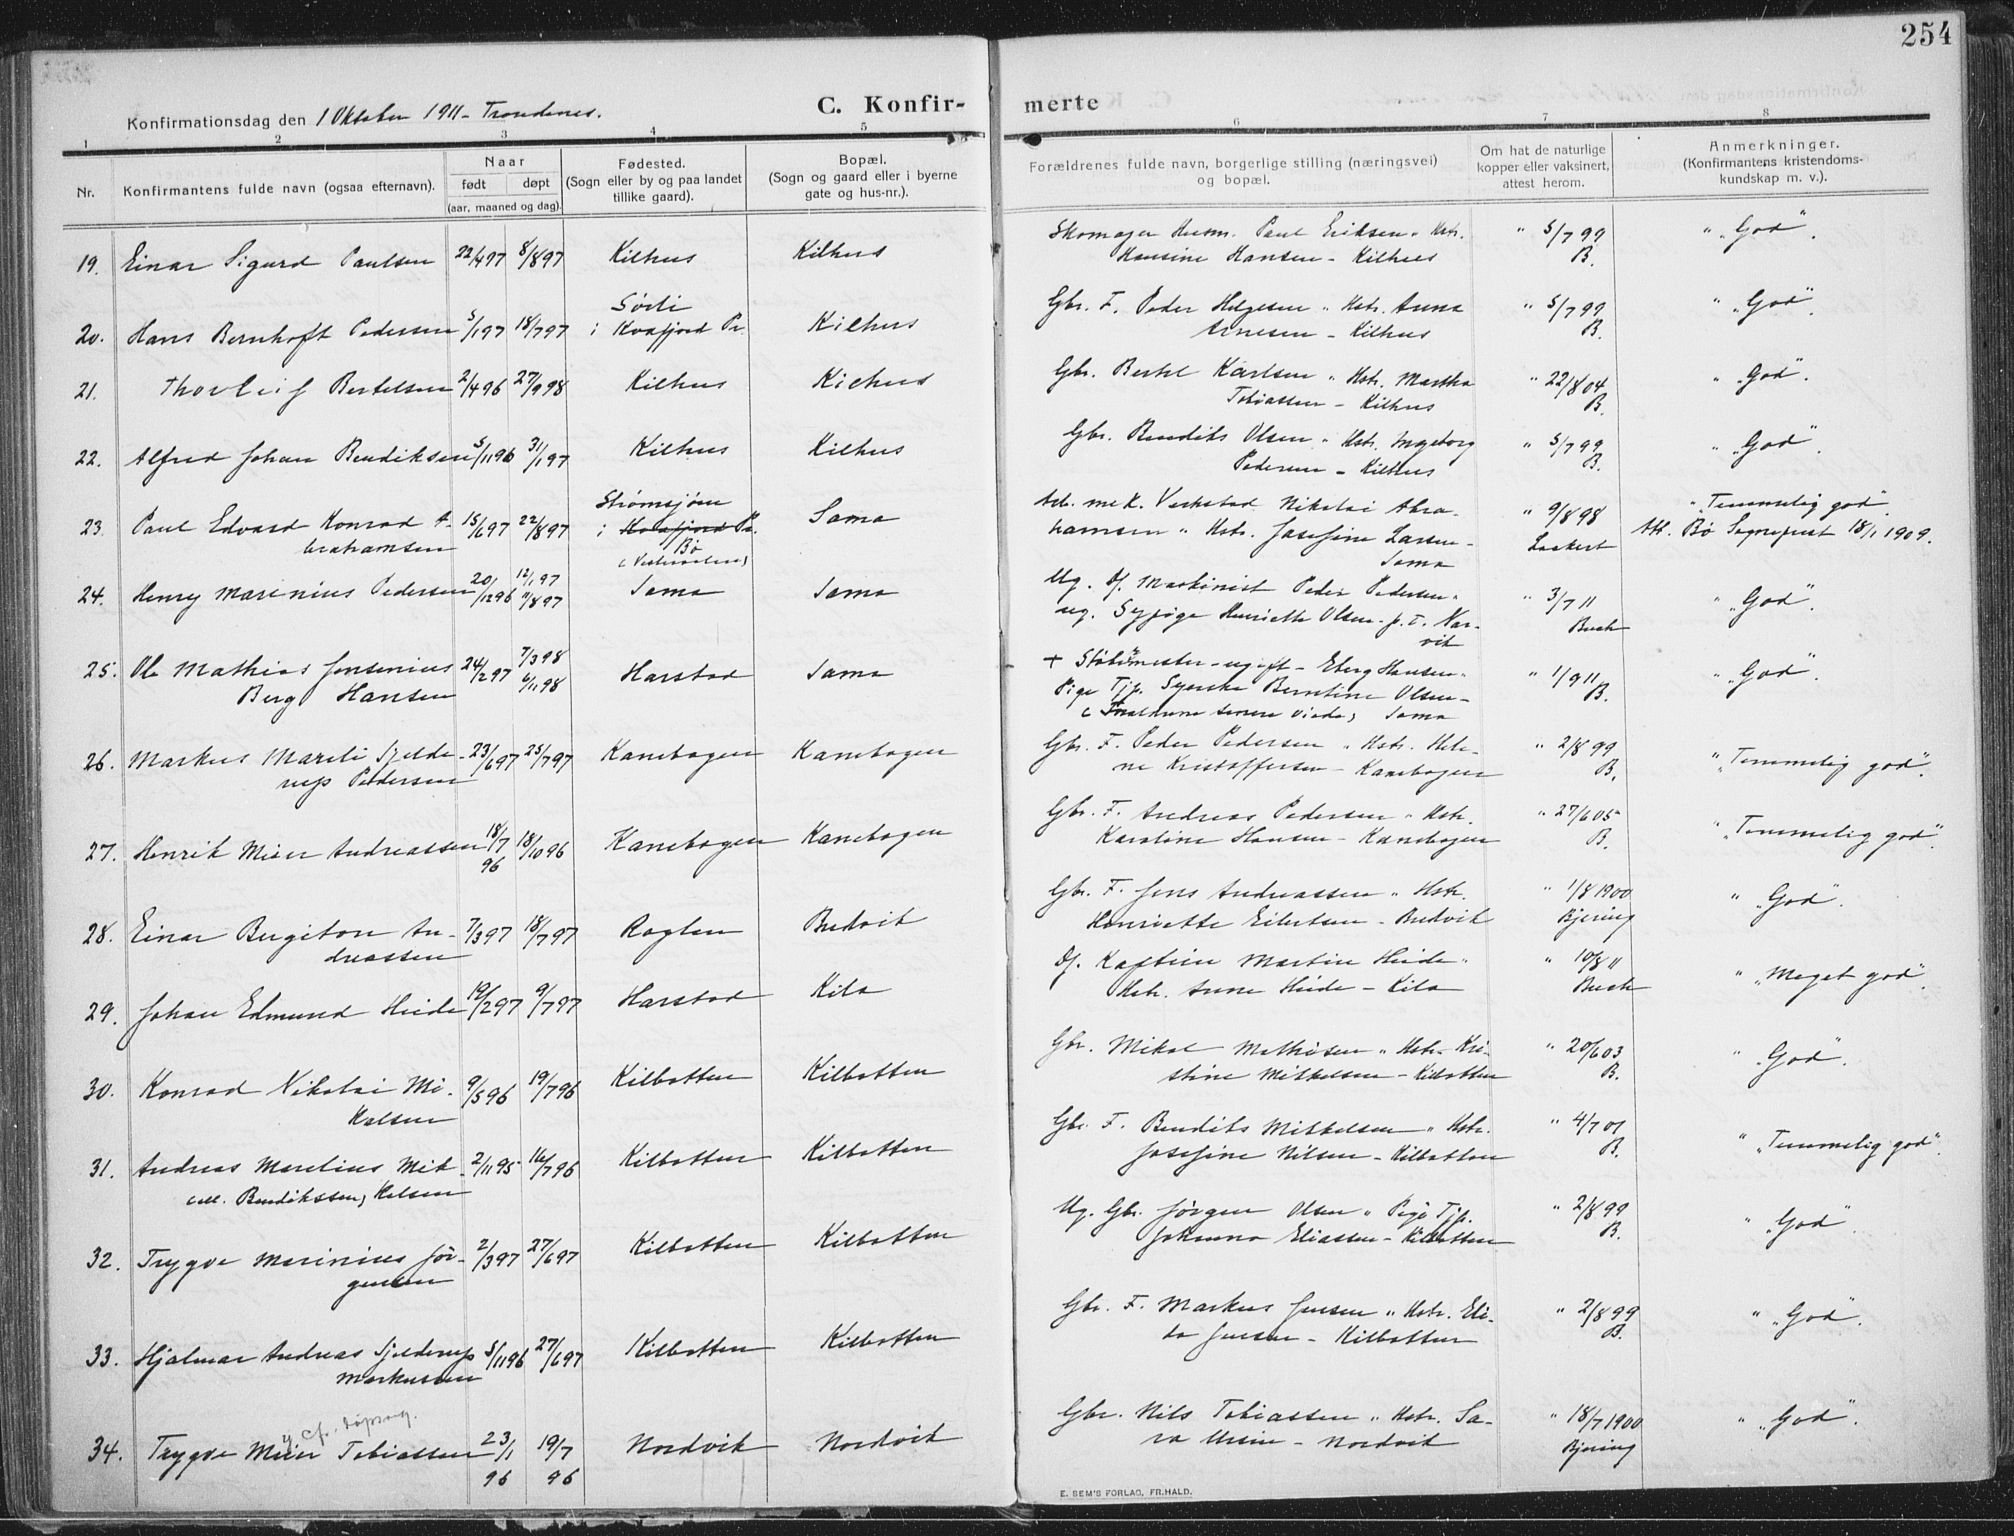 254
Konfirmationsdag den 1 Oktober 1911 - Trondenes.
C. Konfir-
merte
1 2 3 4 5 6 7 8
Nr.
Konfirmantens fulde navn (ogsaa efternavn).
Naar
født døpt
(aar, maaned og dag).
Fødested.
(Sogn eller by og paa landet
tillike gaard).
Bopæl.
(Sogn og gaard eller i byerne
gate og hus-nr.).
Forældrenes fulde navn, borgerlige stilling (næringsvei)
og bopæl.
Om hat de naturlige
kopper eller vaksinert,
attest herom.
Anmerkninger.
(Konfirmantens kristendoms-
kundskap m. v.).
19. Einar Sigurd Paulsen 22/4 97 8/8 97 Kilhus Kilhus
Skomager Husm. Paul Eriksen " Hstr. " 5/7 99 " "God".
Hansine Hansen - Kilhus B.
20. Hans Bernhoft Pedersen 5/1 97 18/7 97 Sørli
i Kvæfjord Pr. Kilhus
Gbr. F. Peder Helgesen " Hstr. Anna " 5/7 99 " "God".
Arnesen - Kilhus B.
21. Thorleif Bertelsen 2/4 96 27/9 98 Kilhus Kilhus
Gbr. Bertel Karlsen " Hstr. Martha " 22/8 04 " "God".
Tobiassen - Kilhus B.
22. Alfred Johan Bendiksen 5/11 96 31/1 97 Kilhus Kilhus
Gbr. Bendiks Olsen " Hstr. Ingeborg " 5/7 99 " "God".
Pedersen - Kilhus B.
23. Paul Edvard Konrad A- 15/6 97 22/8 97 Strømsjøen Sama
brahamsen i Kvæfjord Pr.
Bø
(Vesteraalen)
Arb. mek. Verksted Nikolai Abra- " 9/8 98 " "Temmelig god".
hamsen " Hstr. Josefine Larsen - Lockert Att. Bø Sogneprest 18/1 1909.
Sama
24. Henry Marenius Pedersen 20/12 96 12/1 97 11/8 97 Sama Sama
Ug. Df. Maskinist Peder Pedersen " " 3/7 11 " "God".
ug. Sypige Henriette Olsen - p. t. Nar- Buck
vik
25. Ole Mathias Jensenius 24/2 97 7/3 98 6/11 98 Harstad Sama
Berg Hansen
+ Støbemester - ugift - Eberg Hansen " " 1/9 11 " "God".
Pige Tjp. Syerske Berntine Olsen - B.
(Forældrene senere viede) Sama
26. Markus Mareli Sjelde- 23/6 97 25/7 97 Kanebogen Kanebogen
rup Pedersen
Gbr. F. Peder Pedersen " Hstr. Hele- " 2/8 99 " "Temmelig god".
ne Kristoffersen - Kanebogen B.
27. Henrik Meier Andreassen 18/7 96 18/10 96 Kanebogen Kanebogen
Gbr. F. Andreas Pedersen " Hstr. " 27/6 05 " "Temmelig god".
Karoline Hansen - Kanebogen B.
28. Einar Bergiton An- 7/3 97 18/7 97 Rogten Bredvik
dreassen
Gbr. F. Jens Andreassen " Hstr. " 1/8 1900 " "God".
Henriette Eilertsen - Bredvik Bjering
29. Johan Edmund Heide 19/2 97 9/7 97 Harstad Kila
Df. Kaptein Martin Heide " " 10/8 11 " "Meget god".
Hstr. Anne Heide - Kila Buck
30. Konrad Nikolai Mi- 9/5 96 19/7 96 Kilbotten Kilbotten
kalsen
Gbr. Mikal Mathisen " Hstr. Kri- " 20/6 03 " "God".
stine Mikkelsen - Kilbotten B.
31. Andreas Marelius Mik- 2/11 95 16/7 96 Kilbotten Kilbotten
(ell. Bendikssen) kelsen
Gbr. F. Bendiks Mikkelsen " Hstr. " 4/7 01 " "Temmelig god".
Josefine Nilsen - Kilbotten B.
32. Trygve Marinius Jør- 2/3 97 27/6 97 Kilbotten Kilbotten
gensen
Ug. Gbr. Jørgen Olsen " Pige Tjp. " 2/8 99 " "God".
Johanna Eliassen - Kilbotten B.
33. Hjalmar Andreas Sjelderup 5/11 96 27/6 97 Kilbotten Kilbotten
Markussen
Gbr. F. Markus Jensen " Hstr. Eli- " 2/8 99 " "God".
da Jensen - Kilbotten B.
y cfr. døpreg.
34. Trygve Meier Tobiassen 23/1 96 19/7 96 Nordvik Nordvik
Gbr. Nils Tobiassen " Hstr. Sa- " 18/7 1900 " "God".
ra Ursin - Nordvik Bjering
E. SEM'S FORLAG, FR.HALD.